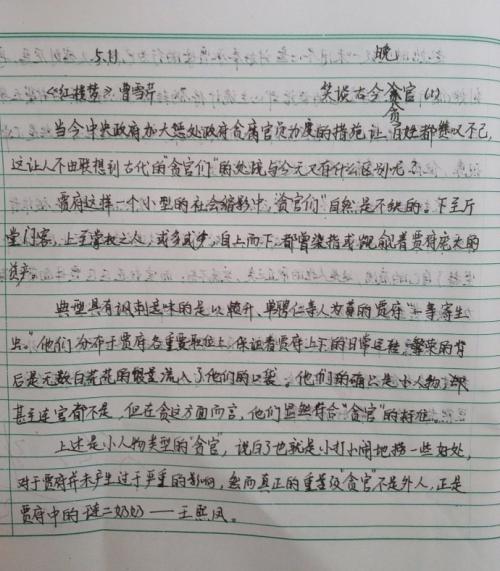 5.11 晚
《红楼梦》曹雪芹 笑谈古今贪官(1)
贪
当今中央政府加大惩处政府贪腐官员力度的措施让百姓都赞叹不已,
这让人不由联想到古代的"贪官们"的处境与今天又有什么区别呢?
贾府这样一个小型的社会缩影中,"贪官们"自然是不缺的。下至厅
堂门客,上至掌权之人,或多或少,自上而下,都曾染指或觊觎着贾府庞大的
资产。
典型具有讽刺意味的是以赖升、单聘仁等人为首的贾府"一等寄生
虫"。他们分布于贾府各重要职位上,保证着贾府上下的日常运转。繁荣的背
后是无数白花花的银蓝流入了他们的口袋。他们的确只是小人物,
甚至连官都不是,但在贪这方面而言,他们显然符合"贪官"的标准。
上述是小人物类型的"贪官",说白了也就是小打小闹地捞一些好处,
对于贾府并未产生过于严重的影响,然而真正的重量级"贪官"不是外人,正是
贾府中的琏二奶奶——王熙凤。